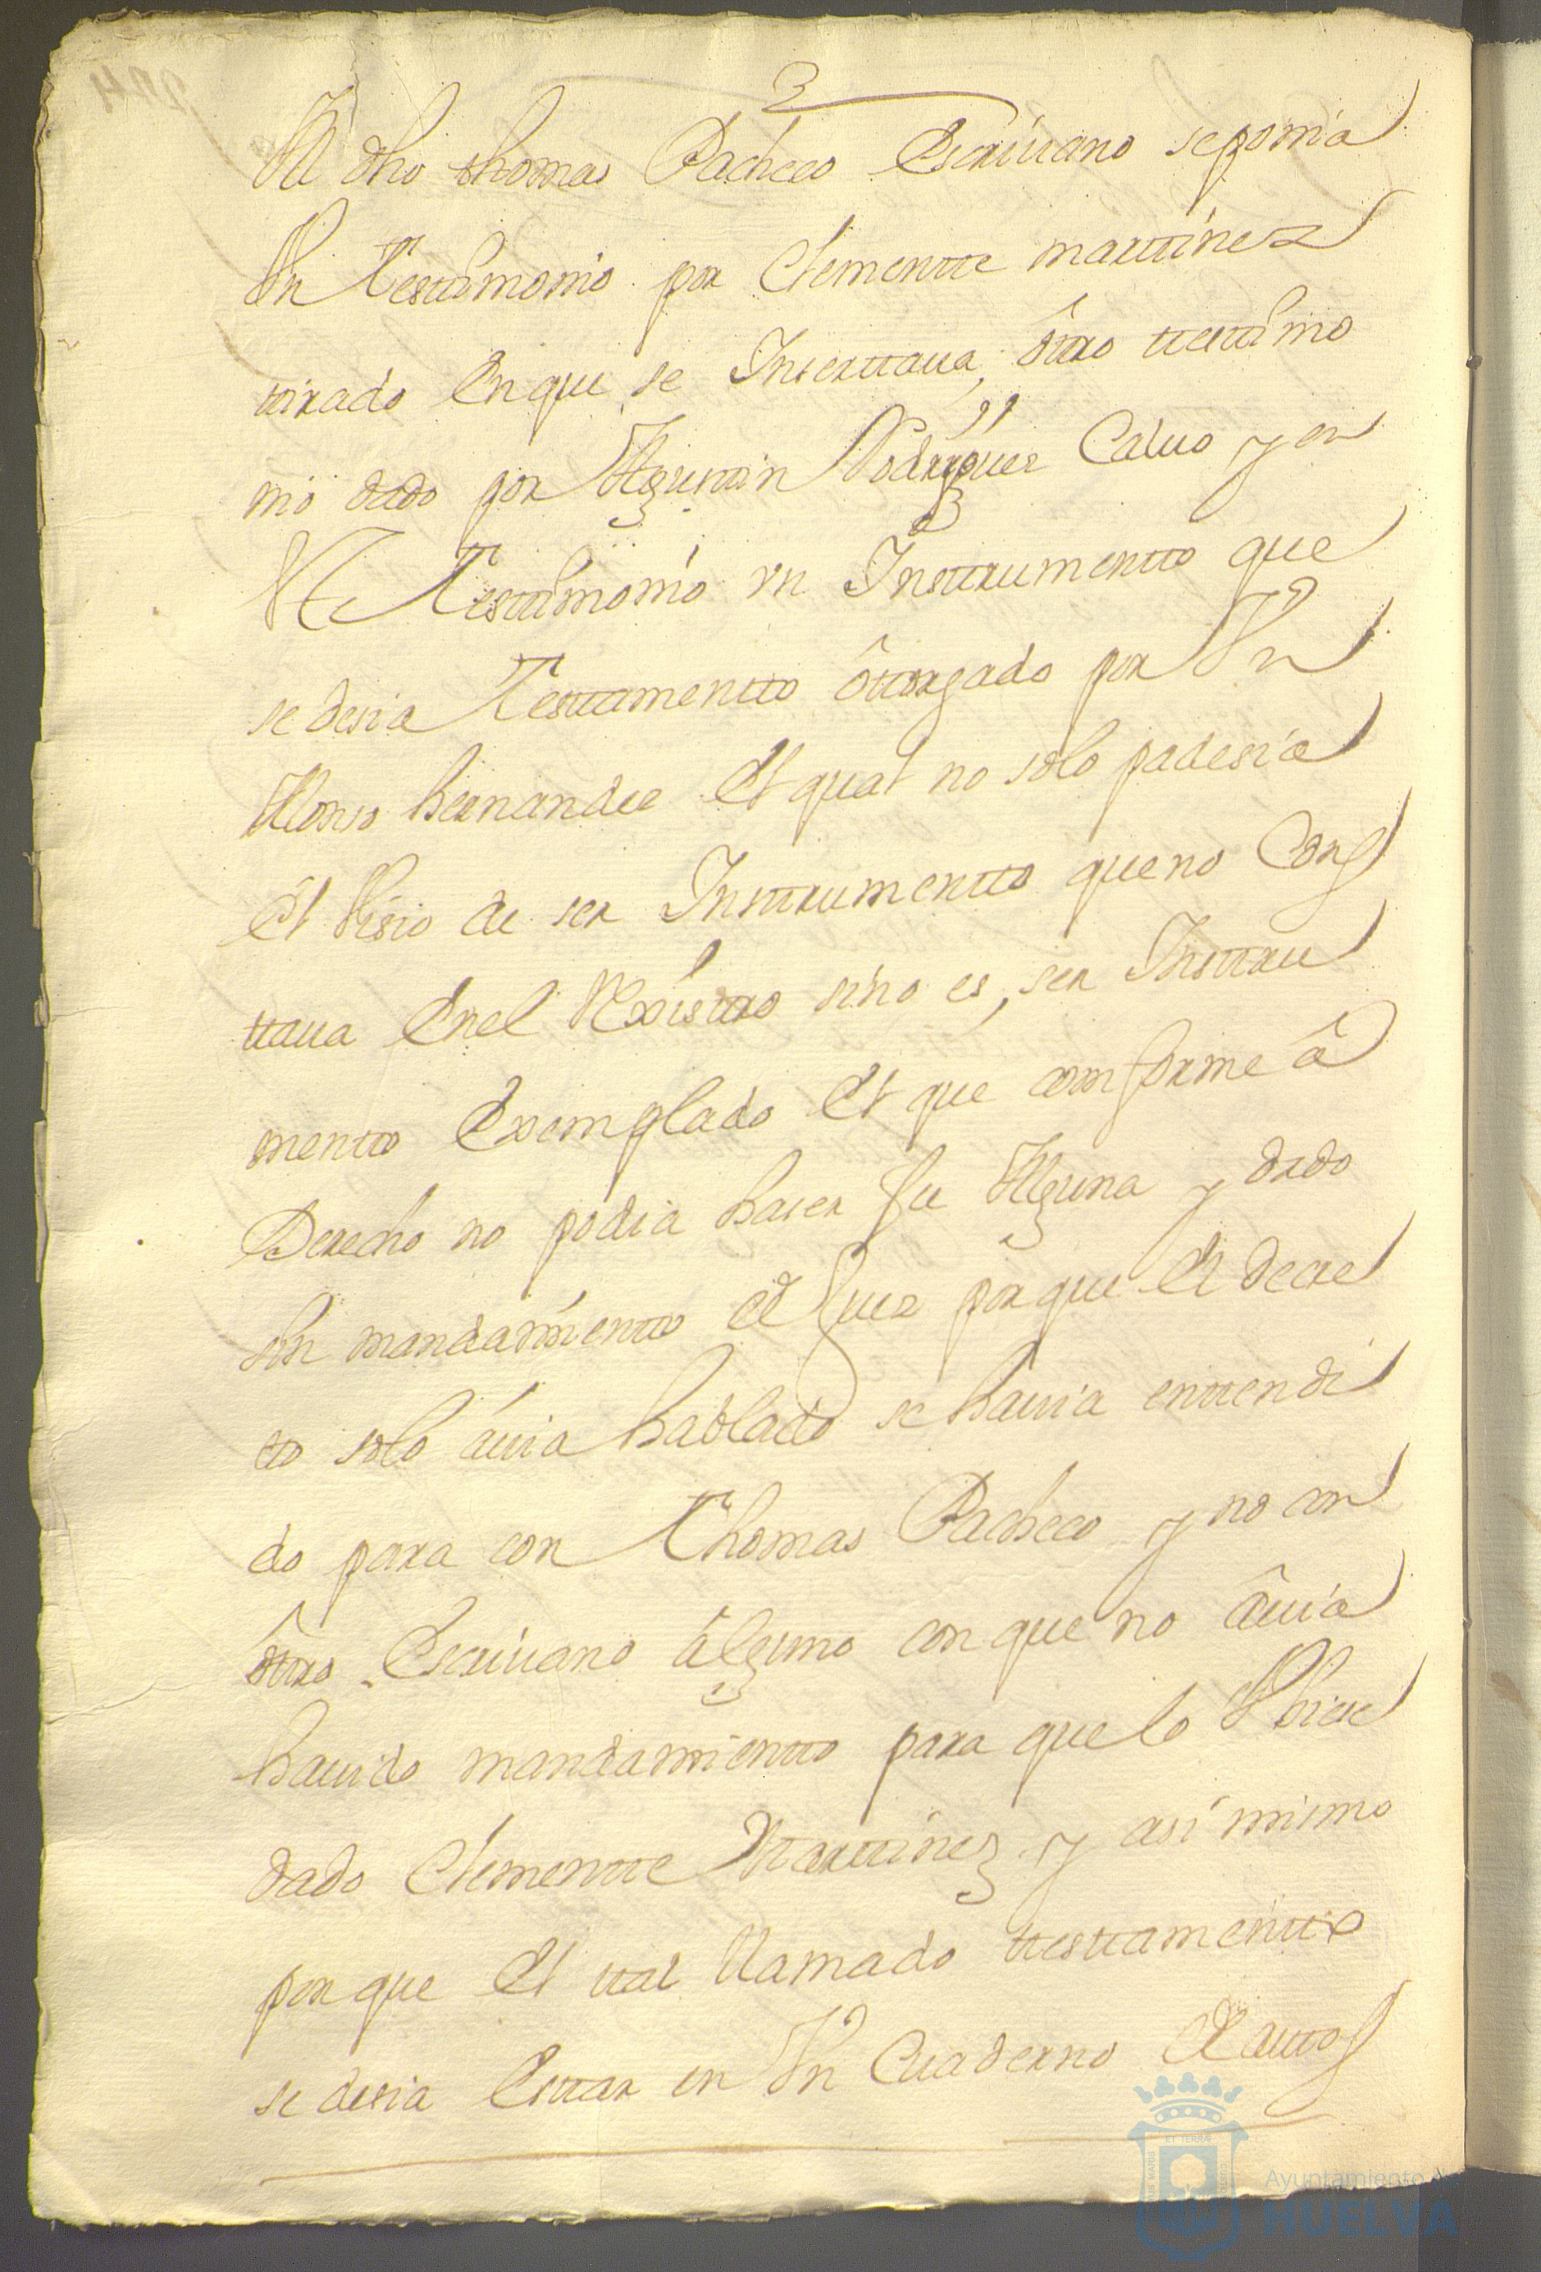 Al dho thomas Pacheco Escriuano se ponia
Vn Testtimonio por Clementte marttinez
tirado En que se Inserttaua, ôttro ttesttimo
nio dado por Agusttin Rodriguez Caluo y en
Este Testtimonio vn Insttrumentto que
se desia Testtamentto ôttorgado por Vn
Alonso hernandez El qual no solo padesia
El Visio de ser Insttrumentto que no Cons
ttaua En el Rexisttro sino es, ser Insttru
mentto Exemplado El que comforme â
Derecho no podia haser fee Alguna y dado
sin mandamientto de Juez porque El decre
to solo âuia hablado se hauia enttendi
do para con Thomas Pacheco y no con
ôttro Escriuano âlguno con que no âuia
hauido mandamientto para que lo Vbiese
dado Clementte Marttinez y asi mismo
por que El ttal llamado ttesttamentto
se desia Esttar en Vn Cuaderno de auttos
Ayuntamiento de
HUELVA